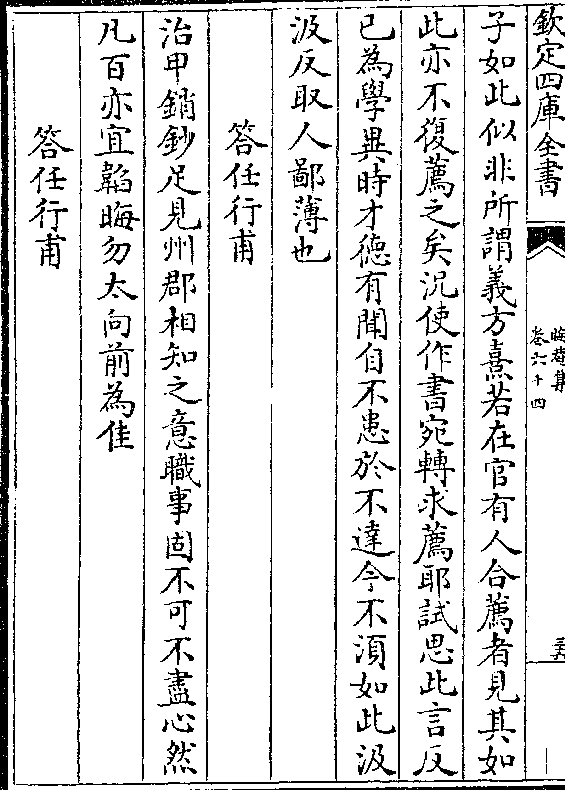 欽定四庫全書
晦菴集
卷六十四
子如此似非所謂義方熹若在官有人合薦者見其如
此亦不復薦之矣况使作書宛轉求薦耶試思此言反
已為學異時才德有聞自不患於不達今不須如此汲
汲反取人鄙薄也
答任行甫
治甲銷鈔足見州郡相知之意職事固不可不盡心然
凡百亦宜韜晦勿太向前為佳
答任行甫